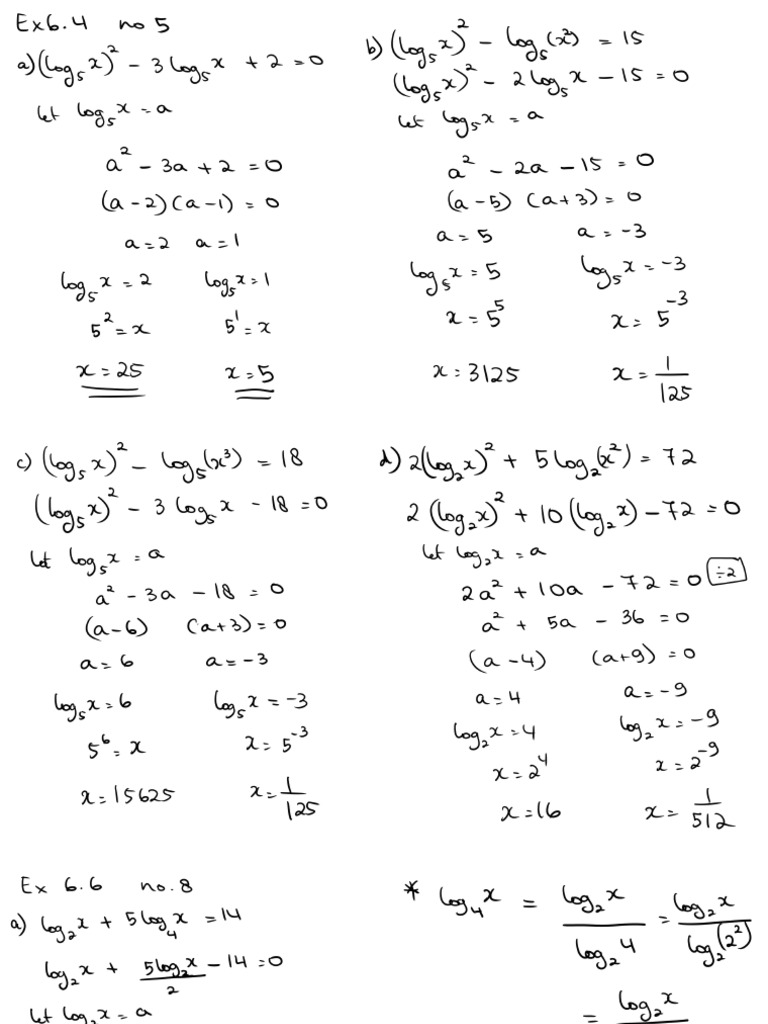 Ex 6.4 no 5
a) (log₅x)² - 3log₅x + 2 = 0
let log₅x = a
a² - 3a + 2 = 0
(a-2)(a-1) = 0
a = 2 a = 1
log₅x = 2 log₅x = 1
5² = x 5¹ = x
x = 25 x = 5
b) (log₅x)² - log₅(x²) = 15
(log₅x)² - 2log₅x - 15 = 0
let log₅x = a
a² - 2a - 15 = 0
(a-5) (a+3) = 0
a = 5 a = -3
log₅x = 5 log₅x = -3
x = 5⁵ x = 5⁻³
x = 3125 x = 1/125
c) (log₅x)² - log₅(x³) = 18
(log₅x)² - 3 log₅x - 18 = 0
let log₅x = a
a² - 3a - 18 = 0
(a-6) (a+3) = 0
a = 6 a = -3
log₅x = 6 log₅x = -3
5⁶ = x x = 5⁻³
x = 15625 x = 1/125
d) 2(log₂x)² + 5log₂(x²) = 72
2(log₂x)² + 10(log₂x) - 72 = 0
let log₂x = a
2a² + 10a - 72 = 0 ÷2
a² + 5a - 36 = 0
(a-4) (a+9) = 0
a = 4 a = -9
log₂x = 4 log₂x = -9
x = 2⁴ x = 2⁻⁹
x = 16 x = 1/512
Ex 6.6 no.8
a) log₂x + 5log₄x = 14
log₂x + 5log₂x/2 - 14 = 0
let log₂x = a
* log₄x = log₂x/log₂4 = log₂x/log₂(2²)
= log₂x